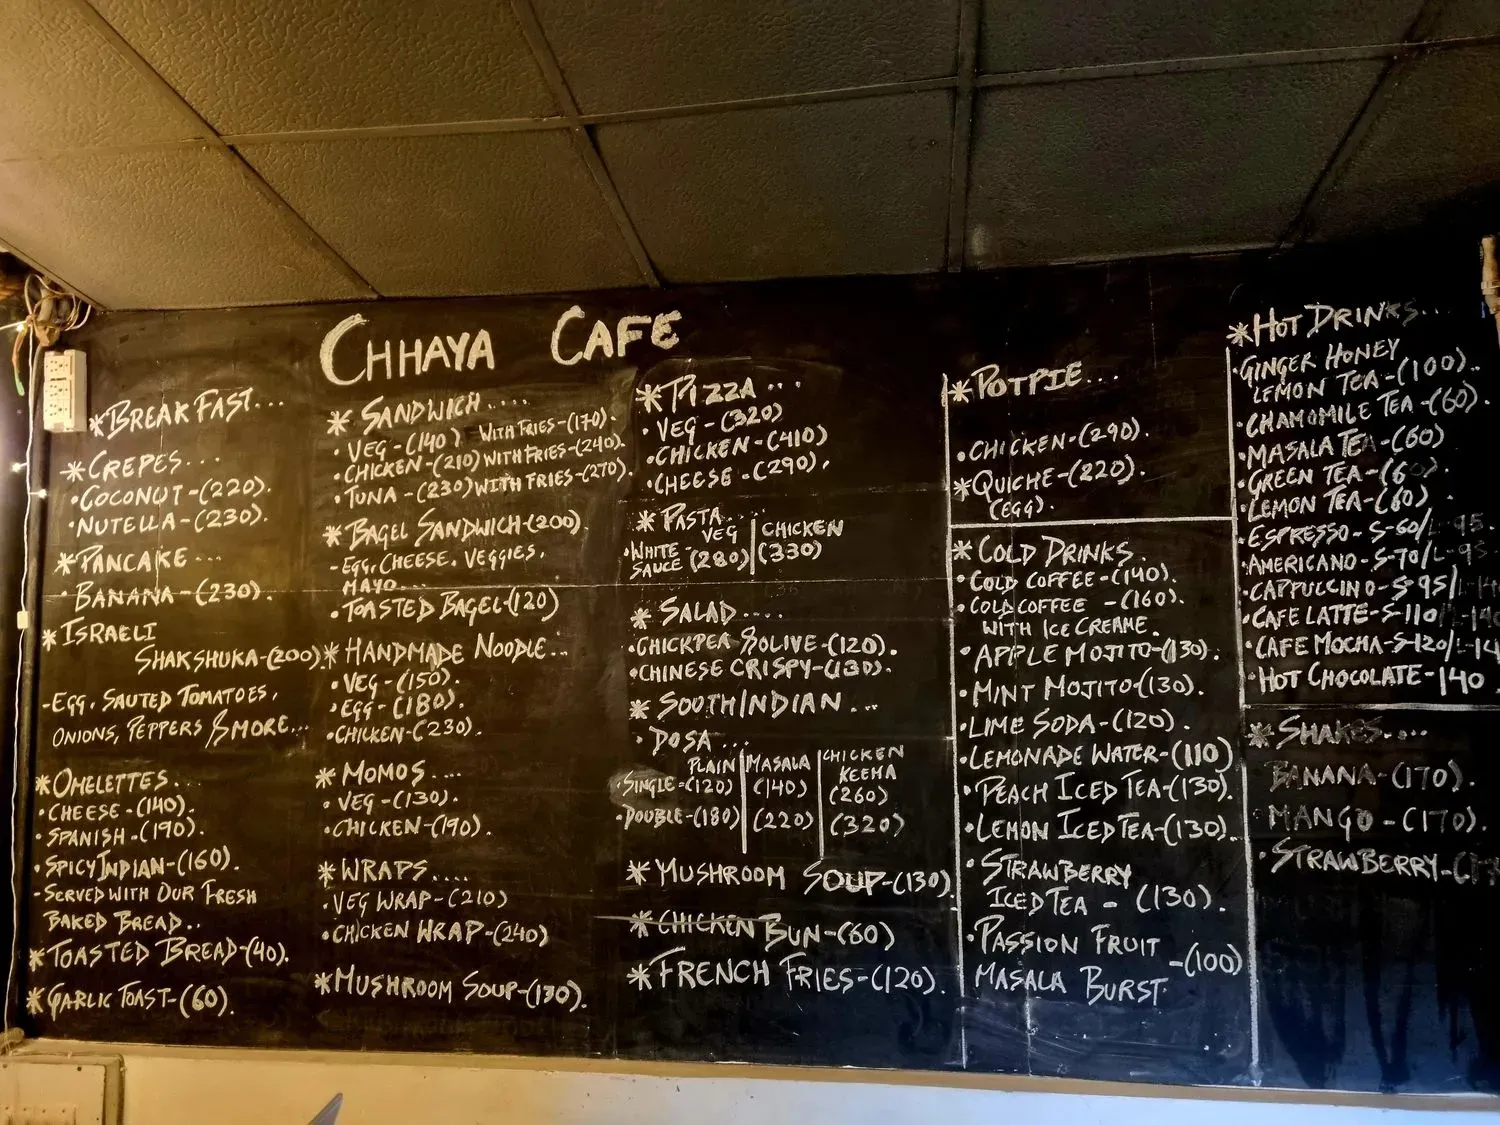 CHHAYA CAFE
*BREAKFAST...
*CREPES...
•COCONUT-(220).
•NUTELLA-(230).
*PANCAKE...
•BANANA-(230).
*ISRAELI
SHAKSHUKA-(200).
-EGG, SAUTED TOMATOES,
ONIONS, PEPPERS & MORE...
*OMELETTES...
•CHEESE-(140).
•SPANISH-(190).
•SPICY INDIAN-(160).
-SERVED WITH OUR FRESH
BAKED BREAD..
*TOASTED BREAD-(40).
*GARLIC TOAST-(60).
*SANDWICH....
•VEG-(140) WITH FRIES-(170).
•CHICKEN-(210) WITH FRIES-(240).
•TUNA-(230) WITH FRIES-(270).
*BAGEL SANDWICH-(200).
-EGG, CHEESE, VEGGIES,
MAYO....
•TOASTED BAGEL-(120)
*HANDMADE NOODLE...
•VEG-(150).
•EGG-(180).
•CHICKEN-(230).
*MOMOS....
•VEG-(130).
•CHICKEN-(190).
*WRAPS....
•VEG WRAP-(210)
•CHICKEN WRAP-(240)
*MUSHROOM SOUP-(130).
*PIZZA...
•VEG-(320)
•CHICKEN-(410)
•CHEESE-(290).
*PASTA...
VEG CHICKEN
•WHITE
SAUCE (280) (330)
*SALAD....
•CHICKPEA & OLIVE-(120).
•CHINESE CRISPY-(130).
*SOUTH INDIAN...
•DOSA...
PLAIN MASALA CHICKEN
KEEMA
•SINGLE-(120) (140) (260)
•DOUBLE-(180) (220) (320)
*MUSHROOM SOUP-(130).
*CHICKEN BUN-(60)
*FRENCH FRIES-(120).
*POTPIE...
•CHICKEN-(290).
*QUICHE-(220).
(EGG).
*COLD DRINKS.
•COLD COFFEE-(140).
•COLD COFFEE -(160).
WITH ICE CREAME.
•APPLE MOJITO-(130).
•MINT MOJITO-(130).
•LIME SODA-(120).
•LEMONADE WATER-(110)
•PEACH ICED TEA-(130).
•LEMON ICED TEA-(130).
•STRAWBERRY
ICED TEA - (130).
•PASSION FRUIT
MASALA BURST. -(100)
*HOT DRINKS...
•GINGER HONEY
LEMON TEA-(100).
•CHAMOMILE TEA-(60).
•MASALA TEA-(60)
•GREEN TEA-(60).
•LEMON TEA-(60).
•ESPRESSO-S-60/L-95.
•AMERICANO-S-70/L-95.
•CAPPUCCINO-S-95/
•CAFE LATTE-S-110/
•CAFE MOCHA-S-120/
•HOT CHOCOLATE-140
*SHAKES....
•BANANA-(170).
•MANGO-(170).
•STRAWBERRY-